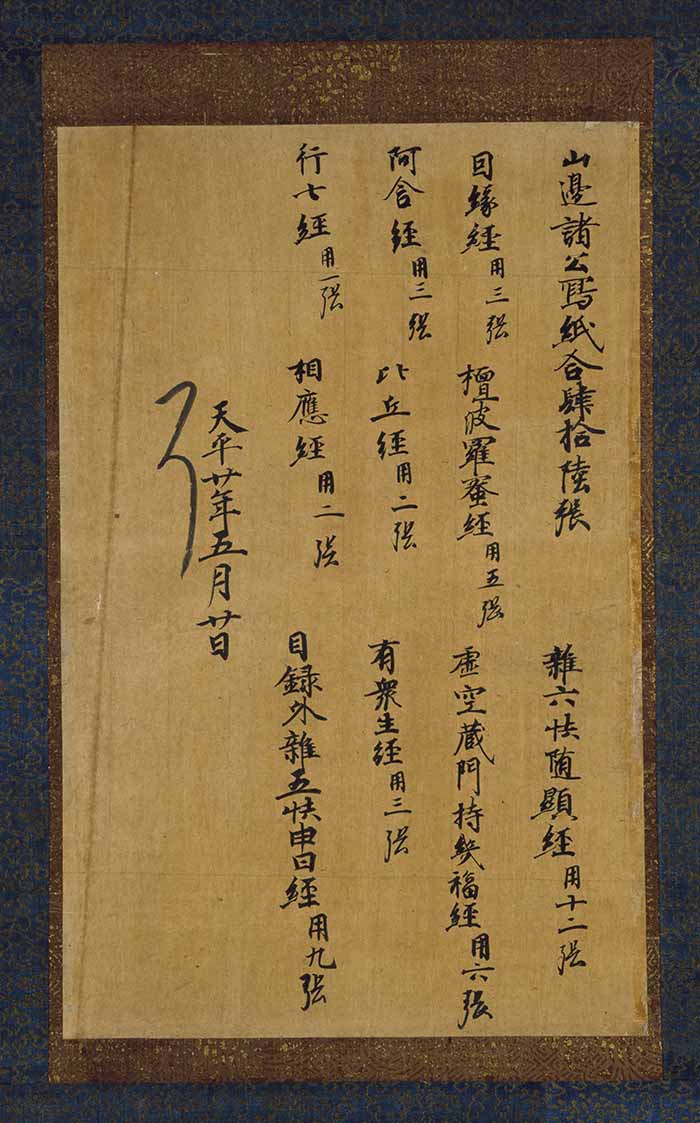 山邊諸公寫紙合肆拾陸張 雜六帙随願経 用十二張
因縁経 用三張 檀波羅蜜経 用五張 虚空蔵門持幾福経 用六張
阿含経 用三張 比丘経 用二張 有衆生経 用三張
行七経 用一張 相應経 用二張 目録外雜五帙申日経 用九張
天平廿年五月廿日